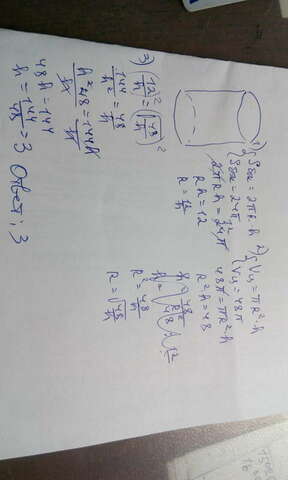 1) Sбок = 2πR·h
Sбок = 24π
2πRh = 24π
Rh = 12
R = 12/h
2) Vц = πR²·h
Vц = 48π
48π = πR²·h
R²·h = 48
R² = 48/h
R = √48/h
3) (12/h)² = (√48/h)²
144/h² = 48/h
h²48 = 144h
48h = 144
h = 144/48 = 3
Ответ: 3